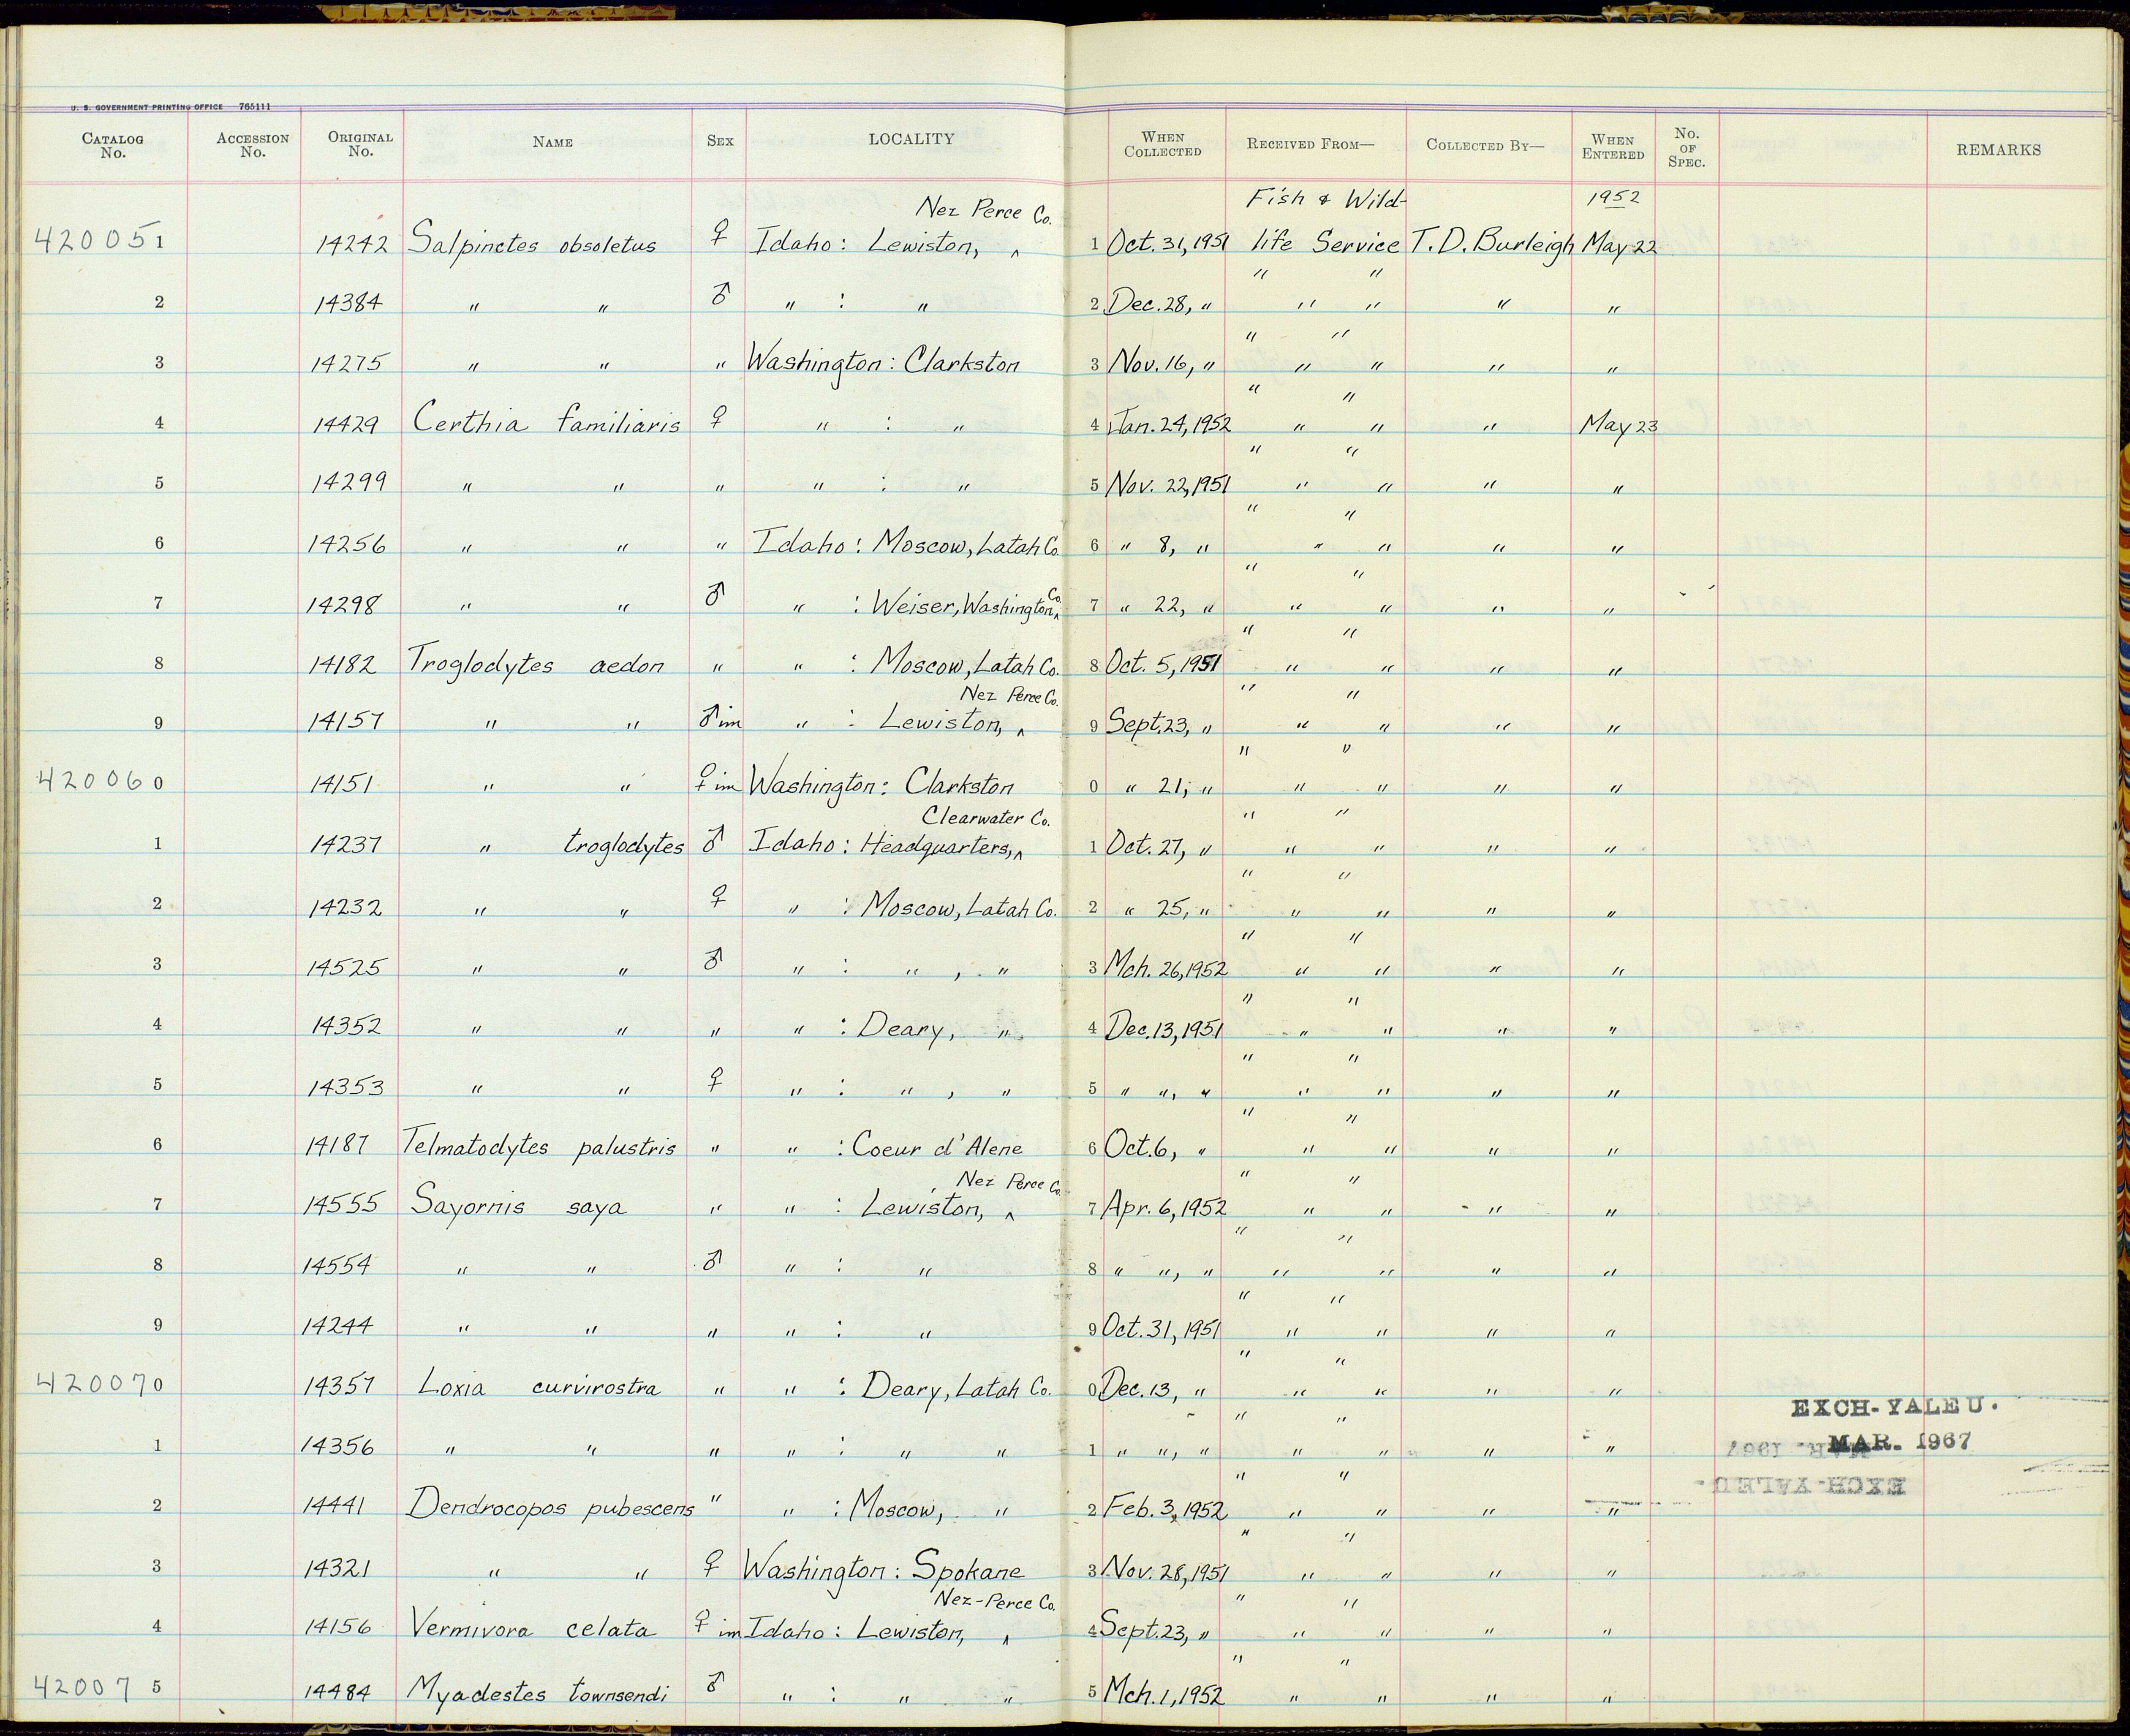 U. S. GOVERNMENT PRINTING OFFICE 765111
CATALOG No. ACCESSION No. ORIGINAL No. NAME SEX LOCALITY WHEN COLLECTED RECEIVED FROM— COLLECTED BY— WHEN ENTERED No. OF SPEC. REMARKS
Nez Perce Co. Fish & Wild- 1952
420051 14242 Salpinctes obsoletus ♀ Idaho: Lewiston, ^ 1 Oct. 31, 1951 life Service T. D. Burleigh May 22
" "
2 14384 " " ♂ " : " 2 Dec. 28, " " " " "
" "
3 14275 " " " Washington: Clarkston 3 Nov. 16, " " " " "
" "
4 14429 Certhia familiaris ♀ " : " 4 Jan. 24, 1952 " " " May 23
" "
5 14299 " " " " : " 5 Nov. 22, 1951 " " " "
" "
6 14256 " " " Idaho: Moscow, Latah Co. 6 " 8, " " " " "
" "
7 14298 " " ♂ " : Weiser, Washington ^ Co. 7 " 22, " " " " "
" "
8 14182 Troglodytes aedon " " : Moscow, Latah Co. 8 Oct. 5, 1951 " " " "
Nez Perce Co. " "
9 14157 " " ♂ im " : Lewiston, ^ 9 Sept. 23, " " " " "
" "
420060 14151 " " ♀ im Washington: Clarkston 0 " 21, " " " " "
Clearwater Co. " "
1 14237 " troglodytes ♂ Idaho: Headquarters, ^ 1 Oct. 27, " " " " "
" "
2 14232 " " ♀ " : Moscow, Latah Co. 2 " 25, " " " " "
" "
3 14525 " " ♂ " : " , " 3 Mch. 26, 1952 " " " "
" "
4 14352 " " " " : Deary, " 4 Dec. 13, 1951 " " " "
" "
5 14353 " " ♀ " : " , " 5 " ", " " " " "
" "
6 14187 Telmatodytes palustris " " : Coeur d'Alene 6 Oct. 6, " " " " "
Nez Perce Co. " "
7 14555 Sayornis saya " " : Lewiston, ^ 7 Apr. 6, 1952 " " " "
" "
8 14554 " " ♂ " : " 8 " ", " " " " "
" "
9 14244 " " " " : " 9 Oct. 31, 1951 " " " "
" "
420070 14357 Loxia curvirostra " " : Deary, Latah Co. 0 Dec. 13, " " " " "
" " EXCH-YALE U.
1 14356 " " " " : " " 1 " ", " " " " " MAR. 1967
" "
2 14441 Dendrocopos pubescens " " : Moscow, " 2 Feb. 3, 1952 " " " "
" "
3 14321 " " ♀ Washington: Spokane 3 Nov. 28, 1951 " " " "
Nez-Perce Co. " "
4 14156 Vermivora celata ♀ im Idaho: Lewiston, ^ 4 Sept. 23, " " " " "
" "
420075 14484 Myadestes townsendi ♂ " : " " 5 Mch. 1, 1952 " " " "